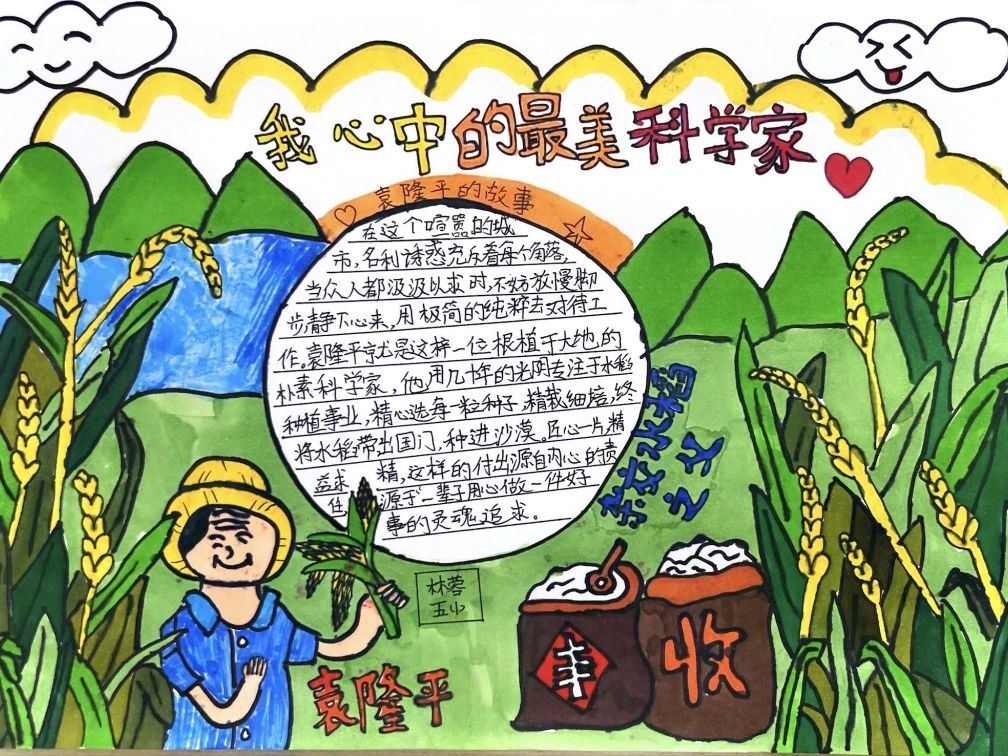 我心中的最美科学家
袁隆平的故事
在这个喧嚣的城
市,名利诱惑充斥着每个角落,
当众人都汲汲以求时,不妨放慢脚
步静下心来,用极简的纯粹去对待工
作。袁隆平就是这样一位根植于大地的
朴素科学家,他用几十年的光阴专注于水稻
种植事业,精心选每一粒种子,精栽细培,终
将水稻带出国门,种进沙漠。匠心一片,精
益求精,这样的付出源自内心的责
任,源于一辈子用心做一件好
事的灵魂追求。
杂交水稻
之父
林蓉
五小
袁隆平
丰
收